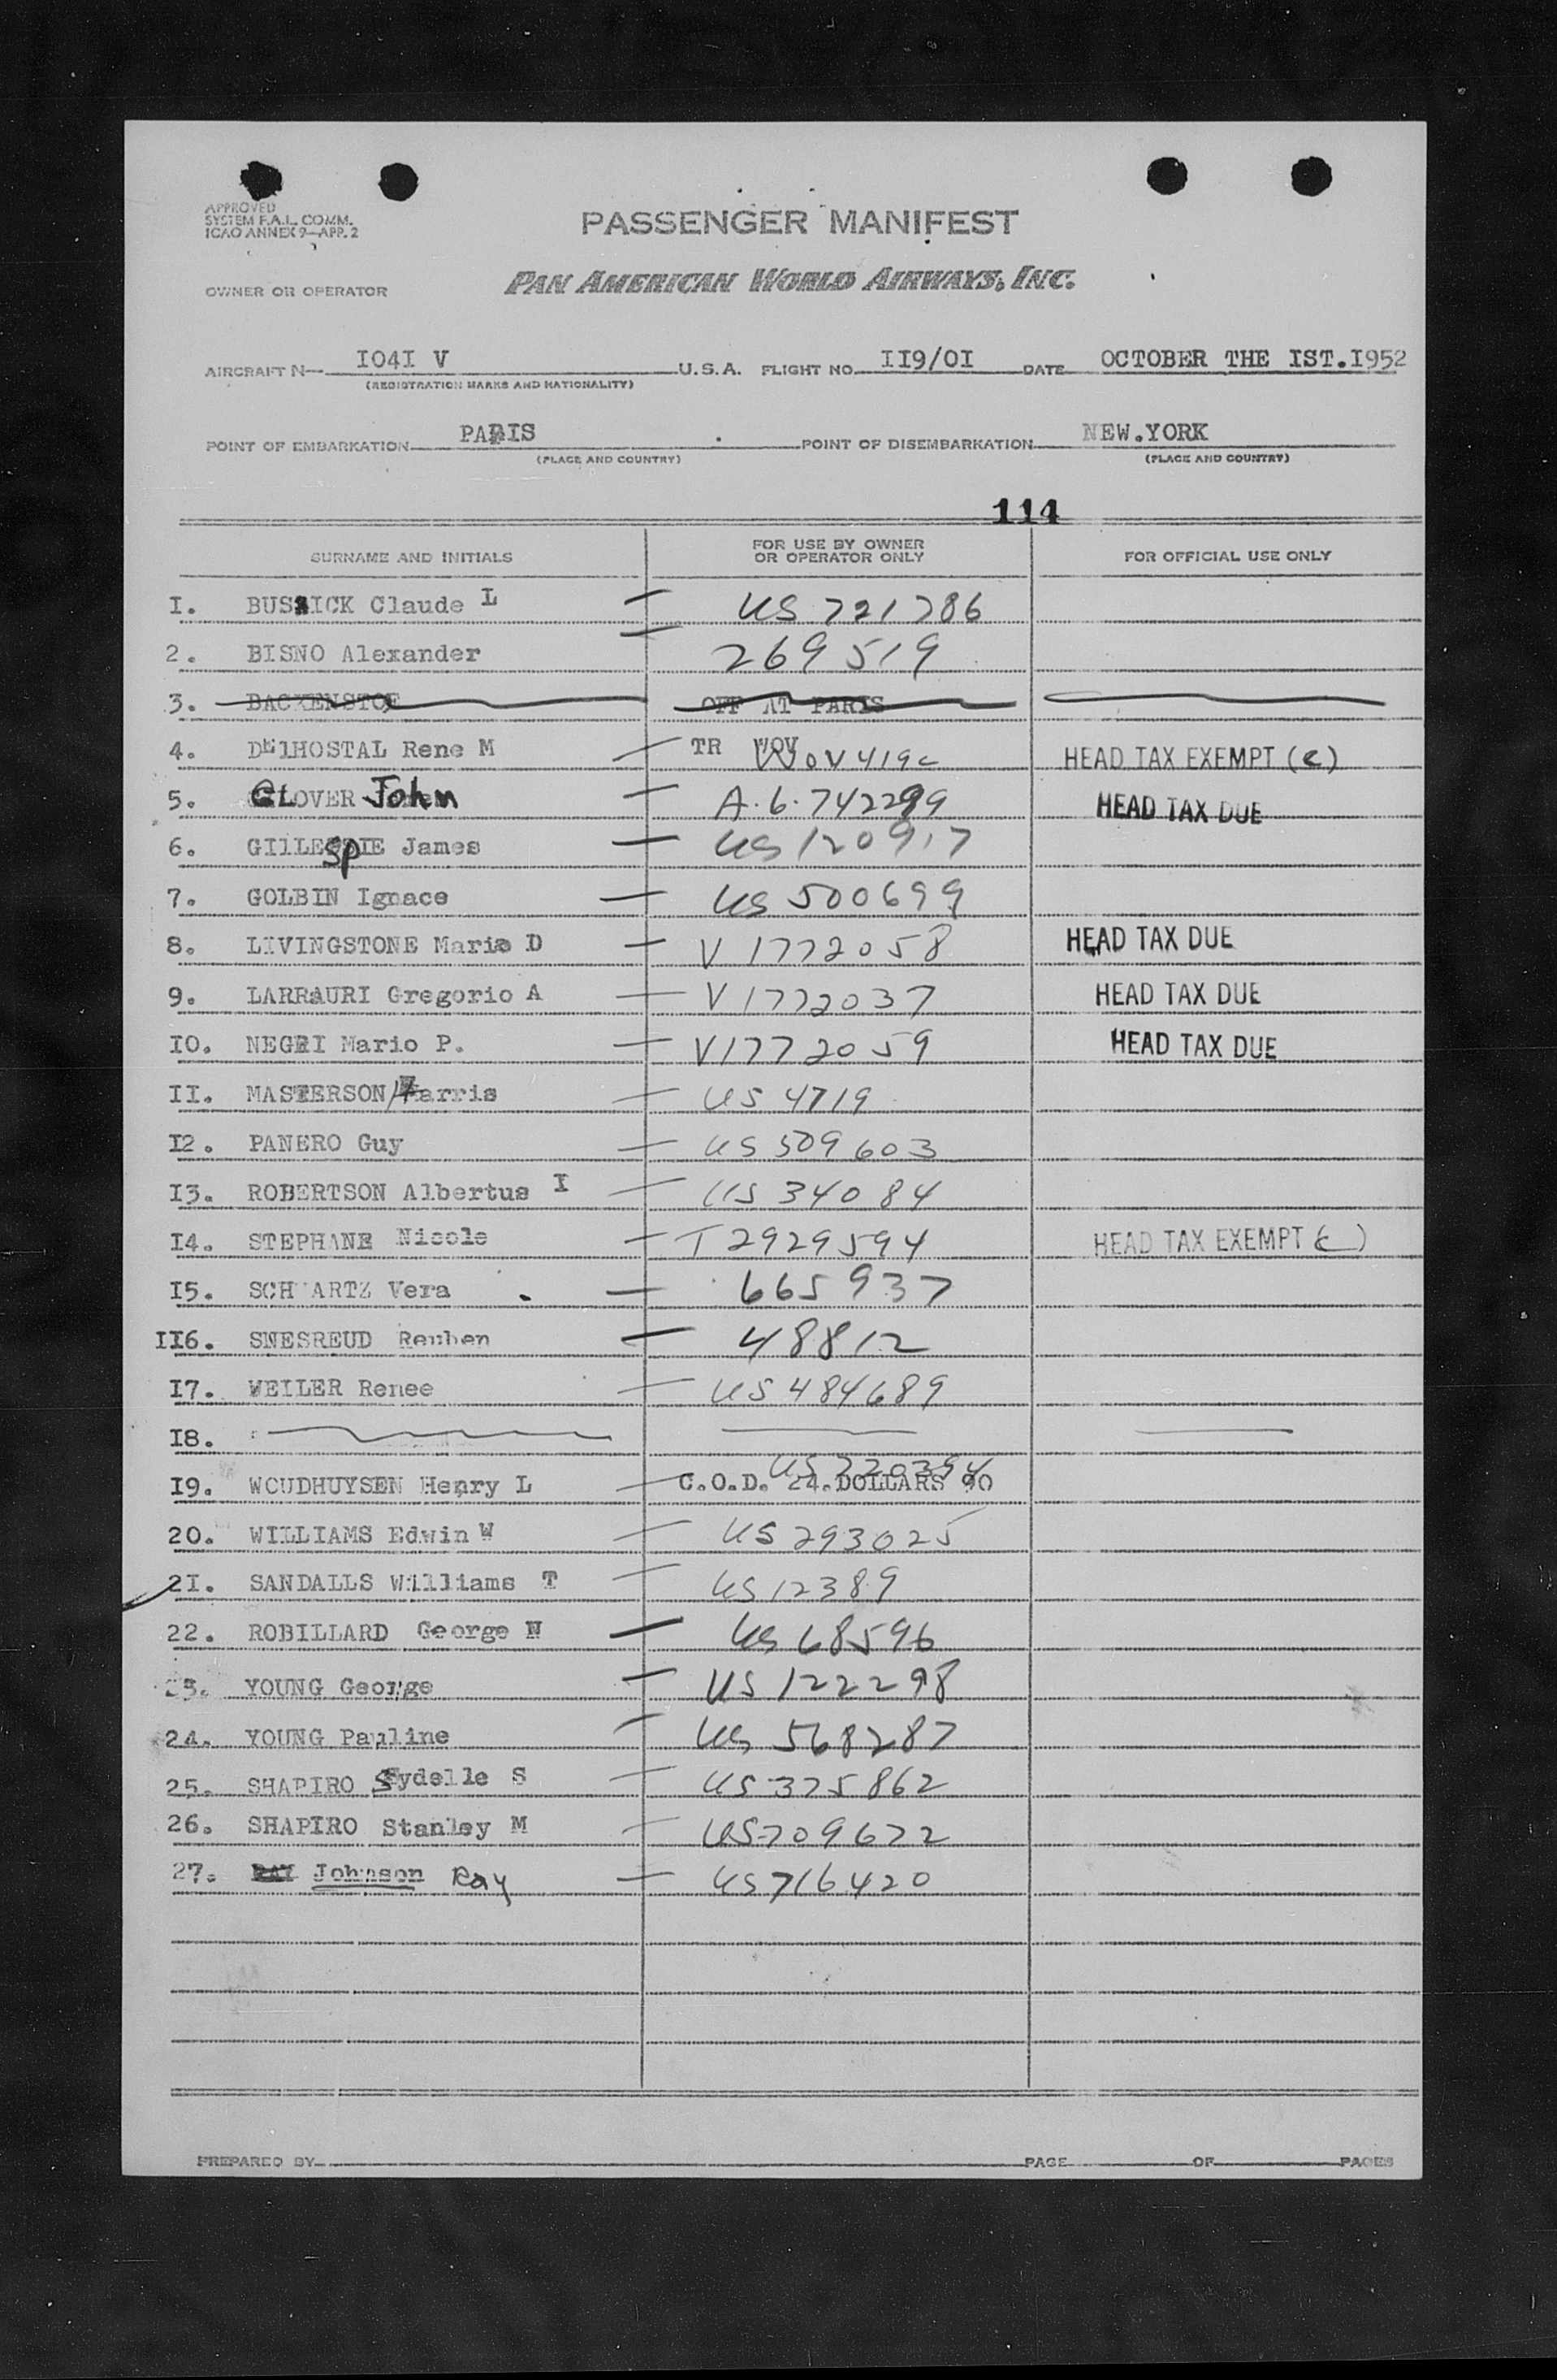 APPROVED
SYSTEM F.A.L. COMM.
ICAO ANNEX 9—APP. 2
PASSENGER MANIFEST
OWNER OR OPERATOR PAN AMERICAN WORLD AIRWAYS, INC.
AIRCRAFT N— I04I V U.S.A. FLIGHT NO. II9/0I DATE OCTOBER THE IST.I952
(REGISTRATION MARKS AND NATIONALITY)
POINT OF EMBARKATION PARIS POINT OF DISEMBARKATION NEW.YORK
(PLACE AND COUNTRY) (PLACE AND COUNTRY)
114
SURNAME AND INITIALS FOR USE BY OWNER OR OPERATOR ONLY FOR OFFICIAL USE ONLY
I. Claude L — US 721786
2. BISNO Alexander — 269519
3. BACKENSTOE OFF AT PARIS
4. DElHOSTAL Rene M — TR WOV V419c HEAD TAX EXEMPT (c)
5. GLOVER John — A.6.742299 HEAD TAX DUE
6. GILLESPIE James — US 120917
7. GOLBIN Ignace — US 500699
8. LIVINGSTONE Marie D — V 1772058 HEAD TAX DUE
9. LARRAURI Gregorio A — V 1772037 HEAD TAX DUE
IO. NEGRI Mario P. — V1772059 HEAD TAX DUE
II. MASTERSON Harris — US 4719
I2. PANERO Guy — US 509603
I3. ROBERTSON Albertus I — US 34084
I4. STEPHANE Nicole — T 2929594 HEAD TAX EXEMPT (c)
I5. SCHWARTZ Vera — 665937
II6. SNESREUD Reuben — 48812
I7. WEILER Renee — US 484689
I8.
I9. WOUDHUYSEN Henry L — C.O.D. 24.DOLLARS 90 US 720394
20. WILLIAMS Edwin W — US 293025
2I. SANDALLS Williams T — US 12389
22. ROBILLARD George N — US 68596
23. YOUNG George — US 122298
24. YOUNG Pauline — US 568287
25. SHAPIRO Sydelle S — US 375862
26. SHAPIRO Stanley M — US709672
27. RAY Johnson Ray — US716420
PREPARED BY PAGE OF PAGES